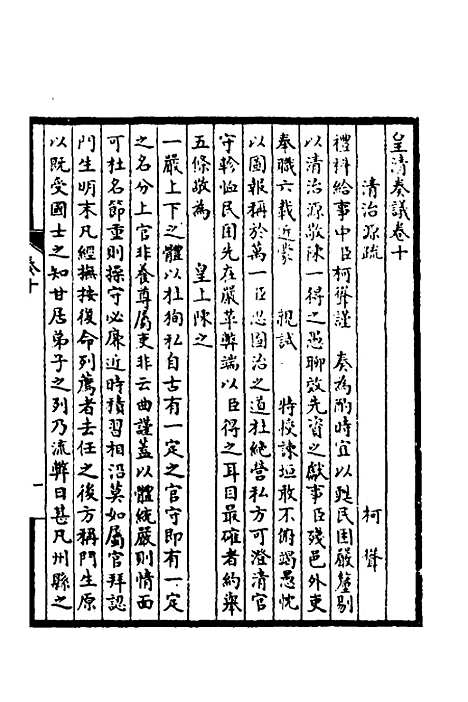 皇清奏議卷十
清治源疏　柯聳
禮科給事中臣柯聳謹　奏為酌時宜以甦民困嚴釐剔
以清治源敬陳一得之愚聊效先資之獻事臣殘邑外吏
奉職六載近蒙　親試　特授諫垣敢不俯竭愚忱
以圖報稱於萬一臣思圖治之道杜絕營私方可澄清官
守軫恤民困先在嚴革弊端以臣得之耳目最確者約舉
五條敬為　皇上陳之
一嚴上下之體以杜狥私自古有一定之官守即有一定
之名分上官非養尊屬吏非云曲謹蓋以體統嚴則情面
可杜名節重則操守必廉近時積習相沿莫如屬官拜認
門生明末凡經撫按復命列薦者去任之後方稱門生原
以既受國士之知甘居弟子之列乃流弊日甚凡州縣之
卷十
一